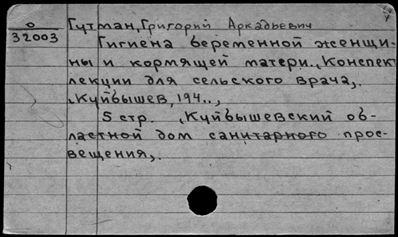 0
32003
Гутман, Григорий Аркадьевич
Гигиена беременной женщи-
ны и кормящей матери. Конспект
лекции для сельского врача,.
Куйбышев, 194..,
5 стр. Куйбышевский об-
ластной дом санитарного прос-
вещения,.